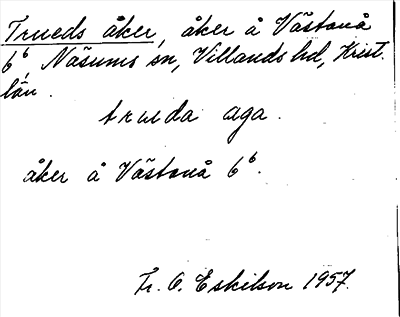 Trueds åker, åker å Västanå
6⁶ Näsums sn, Villands hd, Krist.
län.
trueda aga.
åker å Västanå 6⁶.
Fr. O. Eskilson 1957.